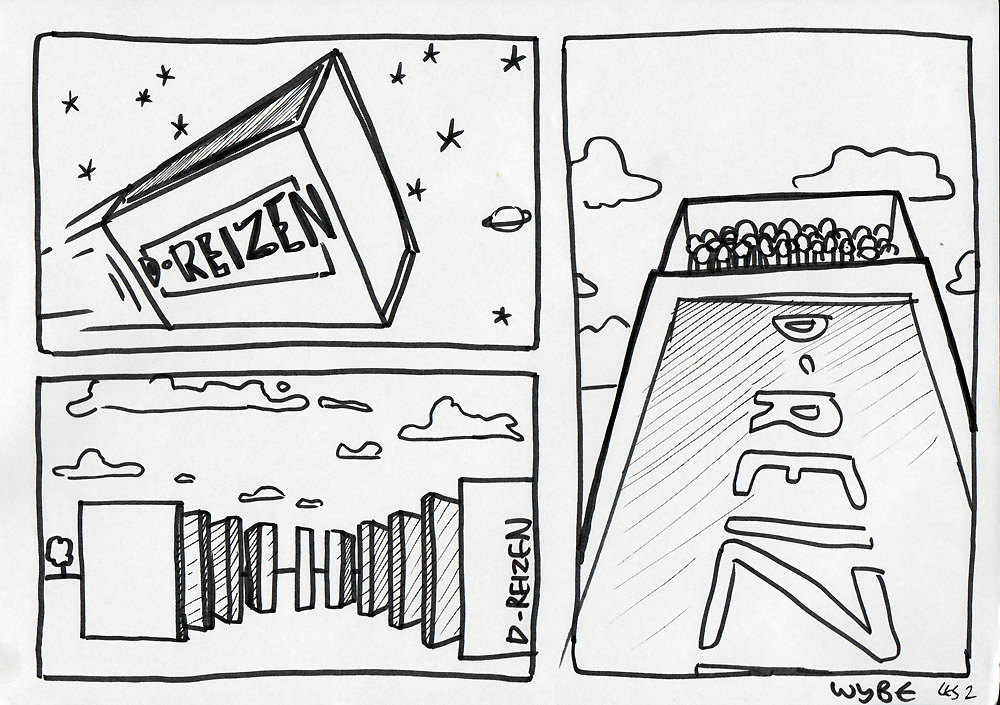 D-REIZEN
D-REIZEN
D-REIZ
WYBE LES 2